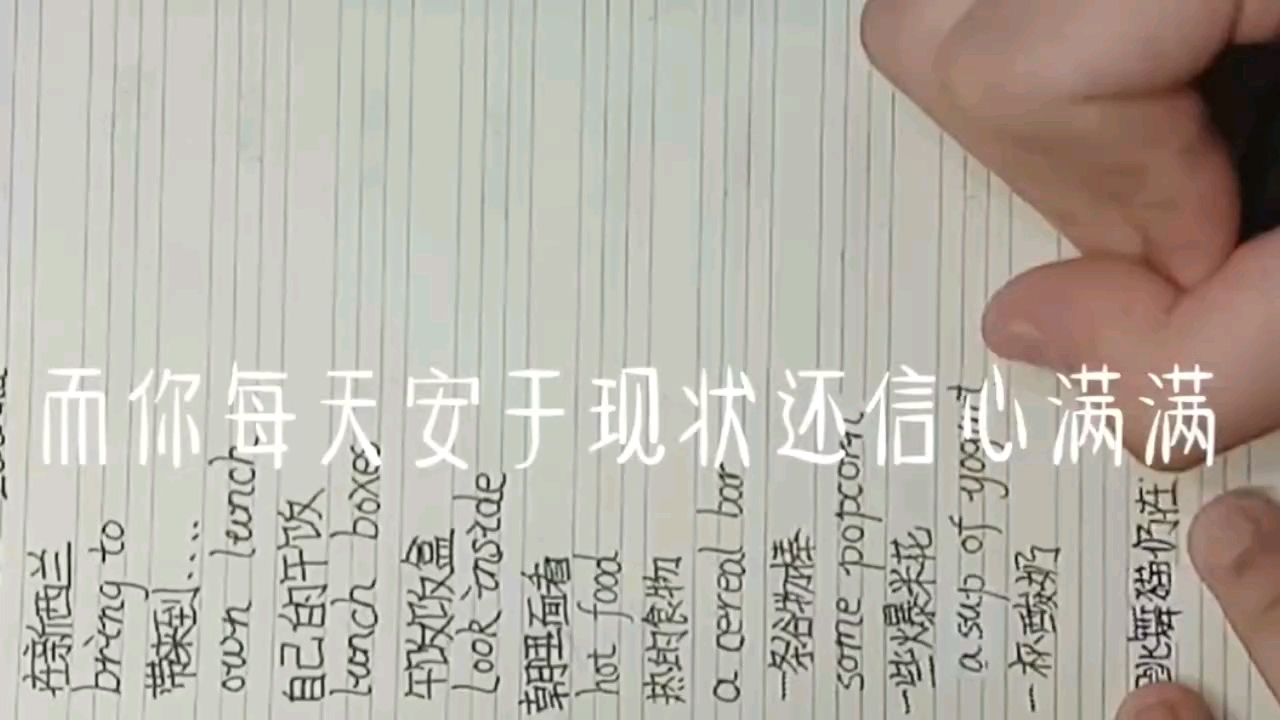 而你每天安于现状还信心满满
在新西兰
bring to
带来到....
own lunch
自己的午饭
lunch boxes
午饭饭盒
Look inside
朝里面看
hot food
热的食物
a cereal bar
一条谷物棒
some popcorn
一些爆米花
a sup of yogurt
一杯酸奶
跳舞猫仍在